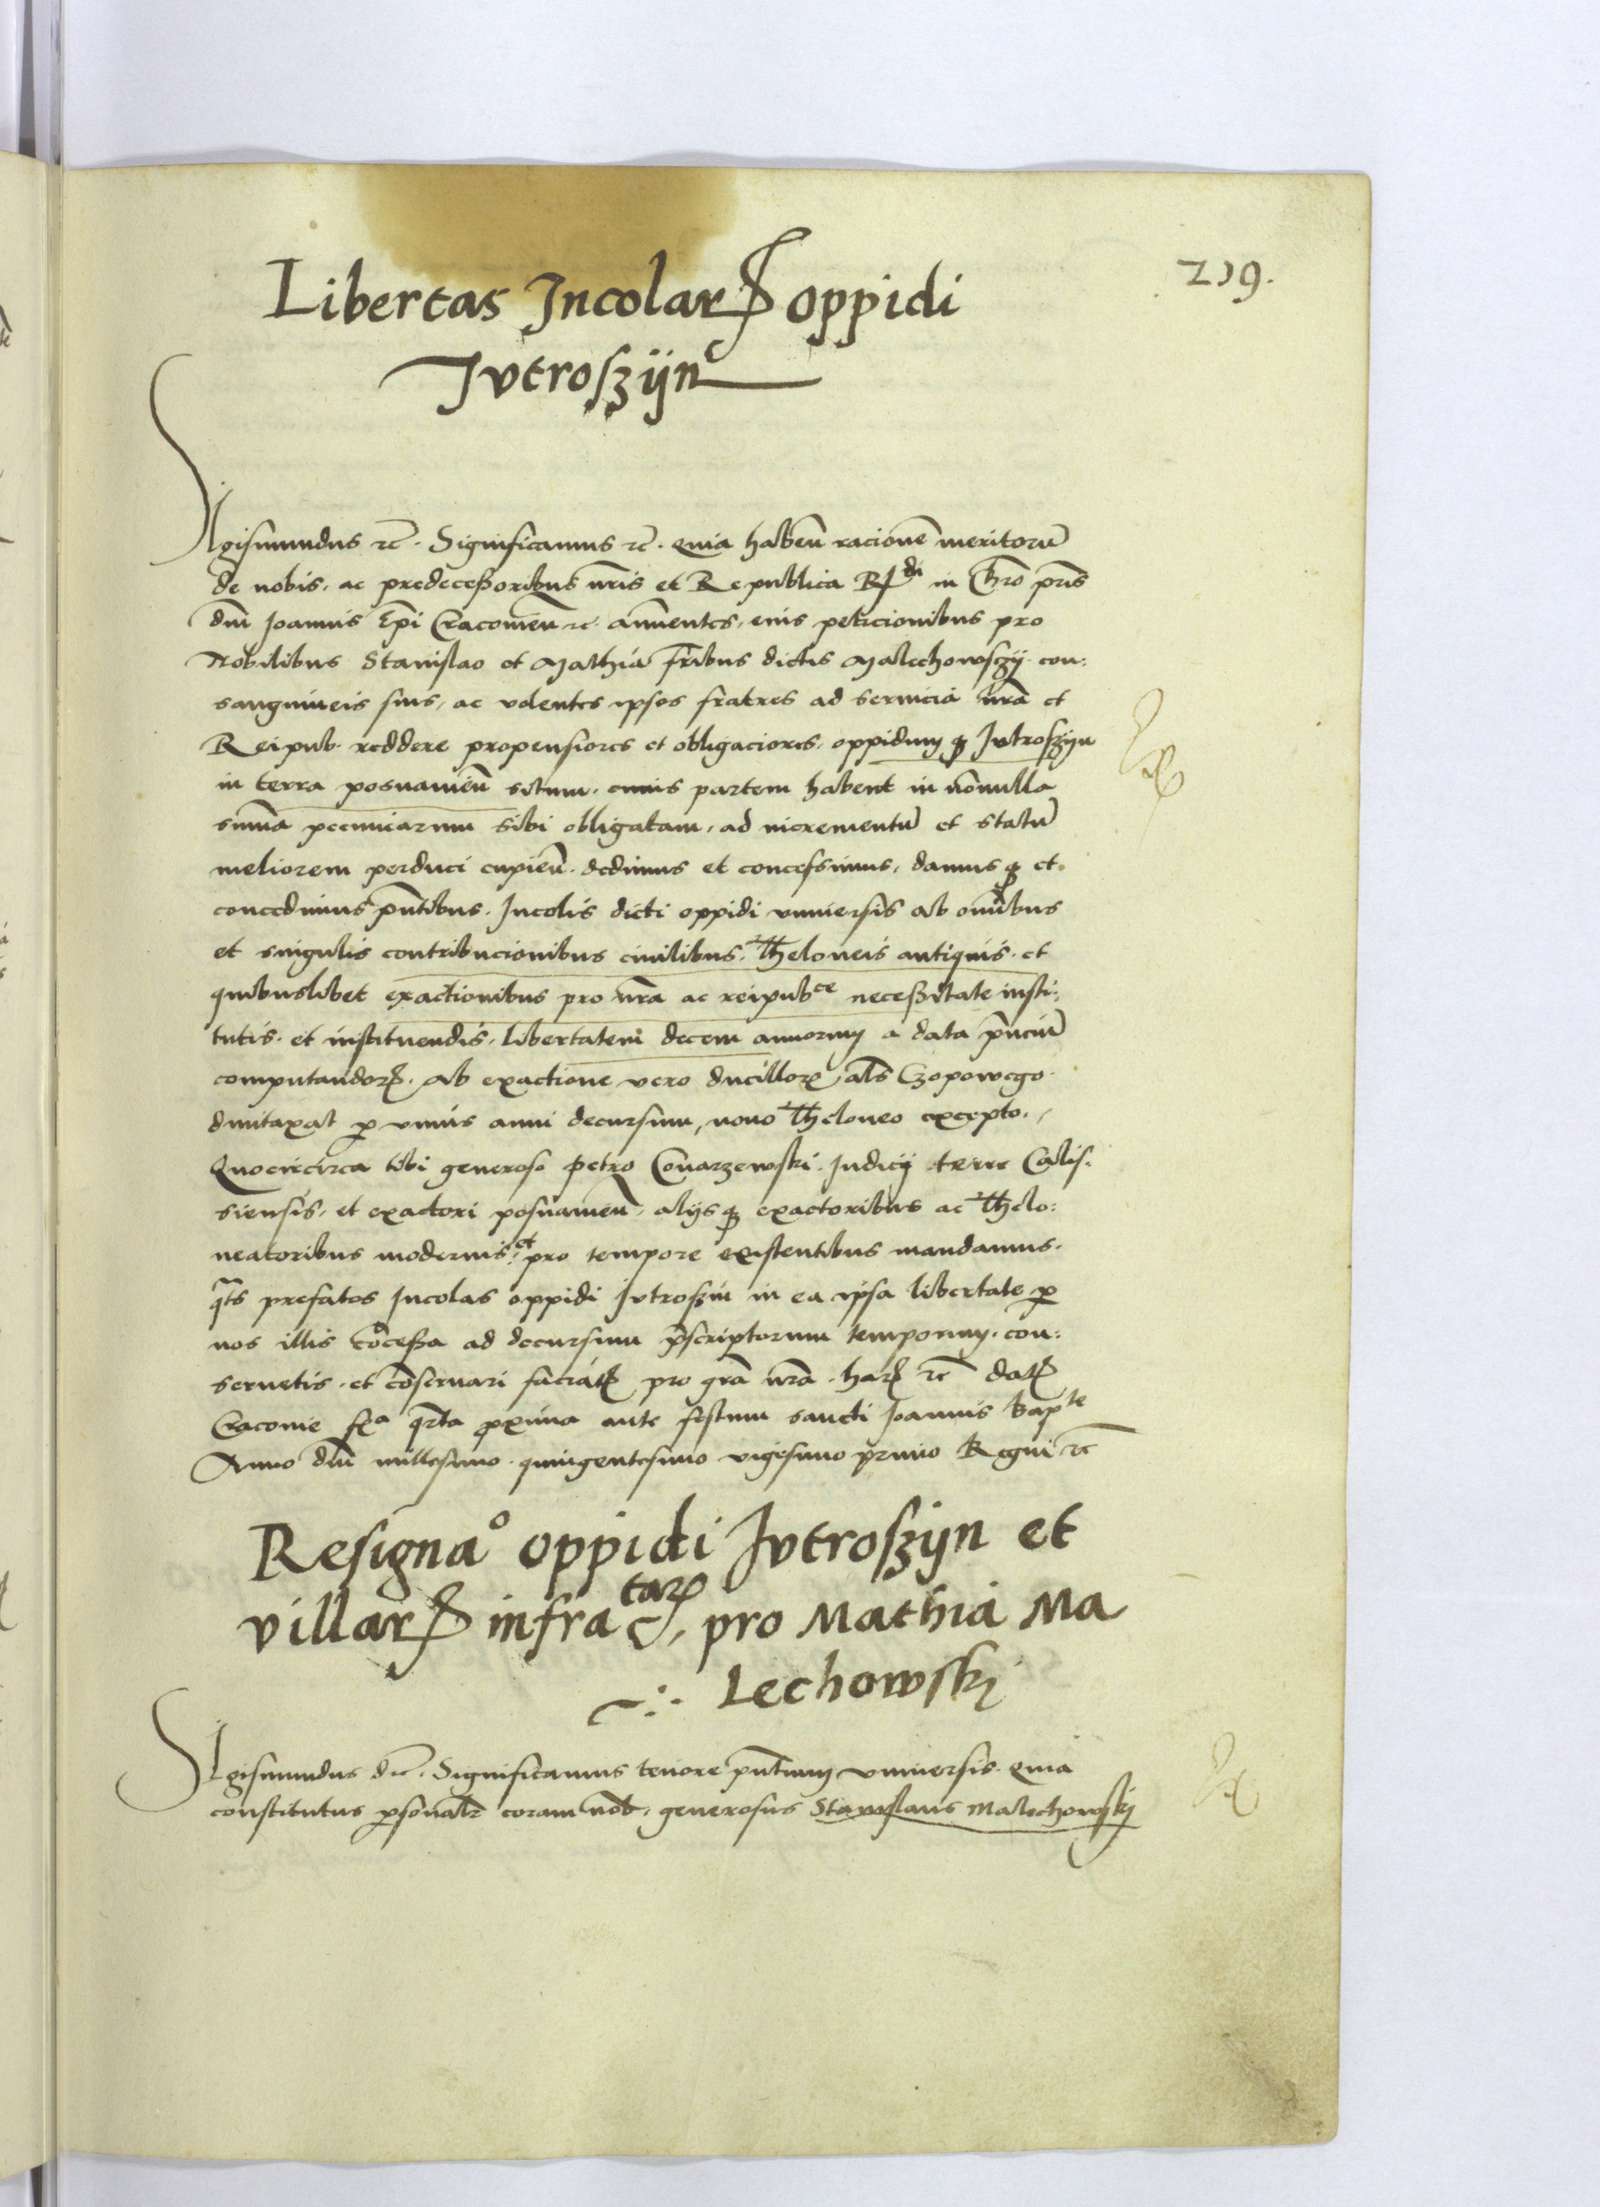 219.
Libertas Incolarꝝ oppidi
Jvtroszijn
Sigismundus ꝛc̄. Significamus ꝛc̄. quia habeñ racionē meritorū
de nobis, ac predecessoribus nr̄is et Republica Rᵈⁱ in Chr̄o pr̄is
dn̄i Joannis Ep̄i Cracouieñ ꝛc. annuentes, eius peticionibus pro
Nobilibus Stanislao et Mathia fr̄ibus dictis Malechowsczij con:
sanguineis suis, ac volentes ipsos fratres ad seruicia nr̄a et
Reipub. reddere propensiores et obligaciores, oppidumqꝫ Jvtroszijn
in terra posnanień situm, cuius partem habent in nōnulla
sum̄a pecuniarum sibi obligatam, ad incrementū et statū
meliorem perduci cupień. dedimus et concessimus, damusqꝫ et
concedimus pn̄tibus. Incolis dicti oppidi vniuersis ab om̄ibus
et singulis contribucionibus ciuilibus, Theloneis antiquis, et
quibuslibet exactionibus pro nr̄a ac reipubᶜᵉ necessitate insti:
tutis, et instituendis, libertatem decem annorum a data pn̄ciū
computandorꝝ. Ab exactione vero ducillorꝝ al̄s Czopowego
duntaxat ꝑ vnius anni decursum, nouo Theloneo excepto.
Quocircirca tibi generoso Petro Couarzewski. Judicij terre Calis.
siensis, et exactori posnanień, alijsqꝫ exactoribus ac Thelo:
neatoribus modernis, et pro tempore existentibus mandamus.
q̄ts prefatos Incolas oppidi Jvtroszin in ea ipsa libertate ꝑ
nos illis cōcessa ad decursum p̄scriptorum temporum, con:
seruetis, et cōseruari faciatꝭ pro gr̄a nr̄a. harꝝ ꝛc̄ datꝭ
Cracouie fᵃ q̄rta ꝓxima ante festum sancti Joannis Bapᵗᵉ
Anno dn̄i millesimo quingentesimo vigesimo primo Regni ꝛc̄
Resignaᵒ oppidi Jvtroszijn et
villarꝝ infra ꝛtarꝝ, pro Mathia Ma
Lechowski
Sigismundus ꝛc̄. Significamus tenore pn̄tium vniuersis. quia
constitutus ꝑsonal̄r coram nob̄, generosus Stanislaus Malechowskij